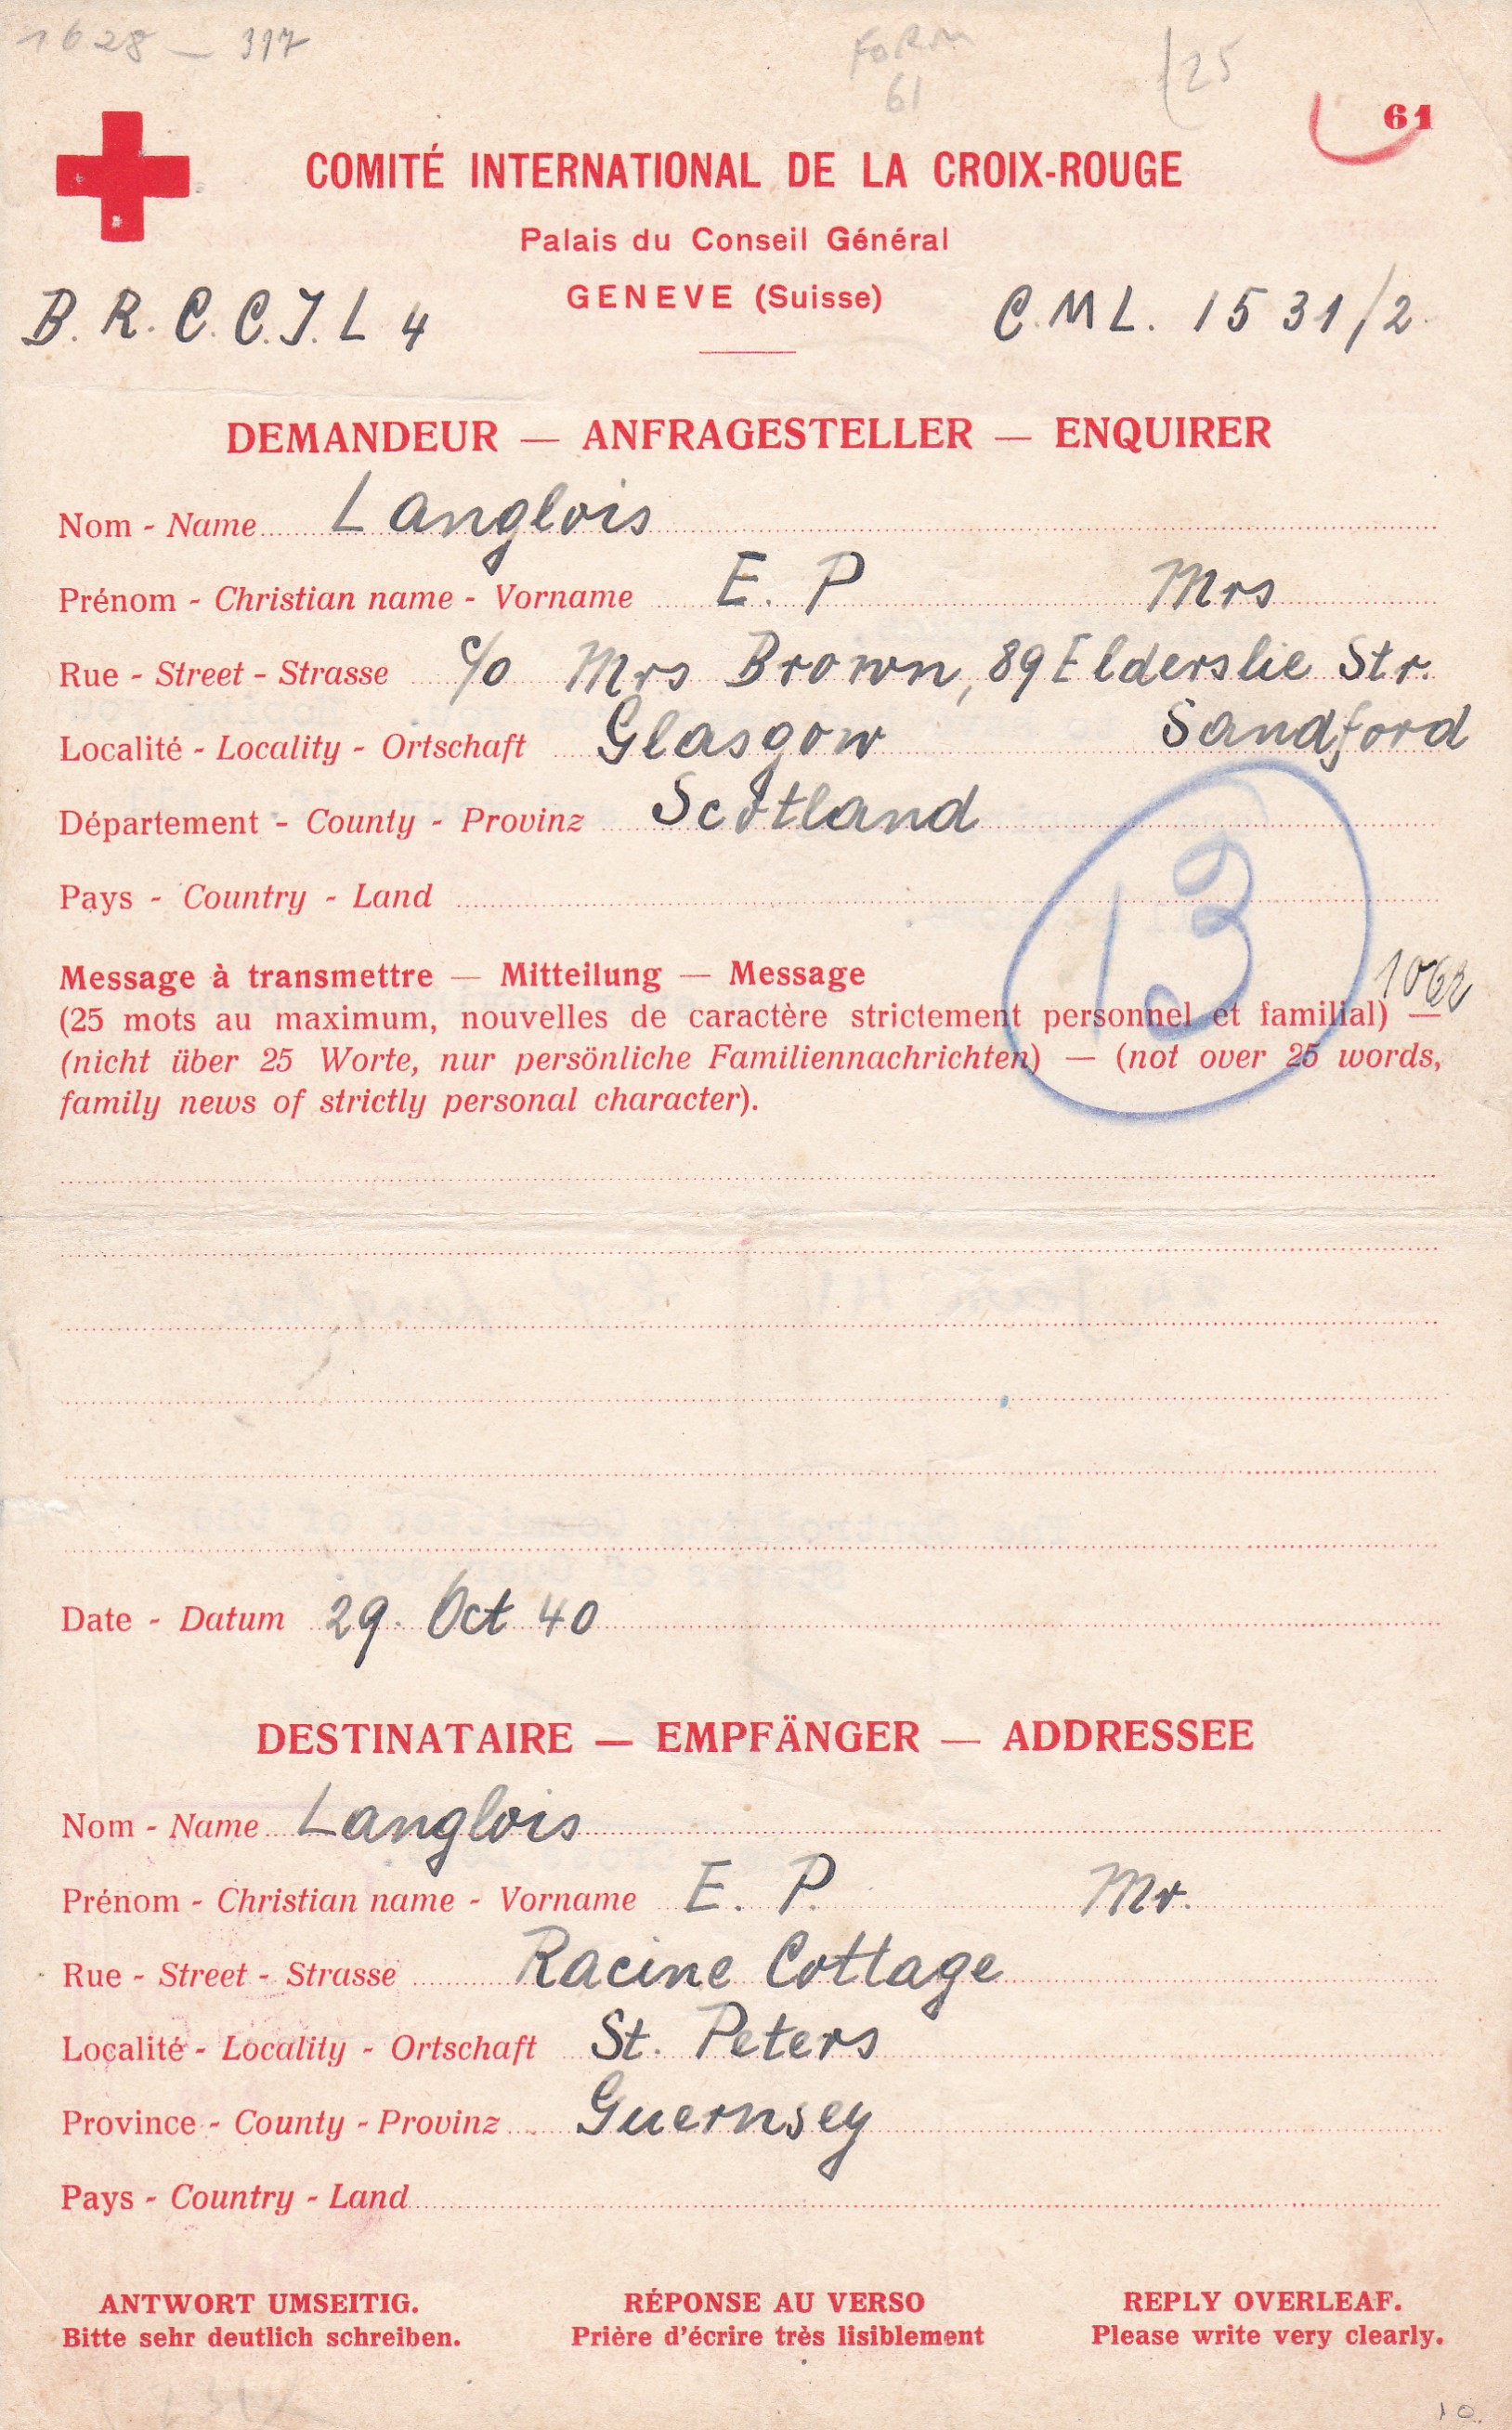 1628 — 397
FORM
61
(25
61
COMITÉ INTERNATIONAL DE LA CROIX-ROUGE
Palais du Conseil Général
GENEVE (Suisse)
B. R. C. C. J. L 4
C. M L. 1531/2.
DEMANDEUR — ANFRAGESTELLER — ENQUIRER
Nom - Name Langlois
Prénom - Christian name - Vorname E. P Mrs
Rue - Street - Strasse c/o Mrs Brown, 89 Elderslie Str.
Localité - Locality - Ortschaft Glasgow Sandford
Département - County - Provinz Scotland
Pays - Country - Land
13
Message à transmettre — Mitteilung — Message
(25 mots au maximum, nouvelles de caractère strictement personnel et familial) —
(nicht über 25 Worte, nur persönliche Familiennachrichten) — (not over 25 words,
family news of strictly personal character).
Date - Datum 29. Oct 40
DESTINATAIRE — EMPFÄNGER — ADDRESSEE
Nom - Name Langlois
Prénom - Christian name - Vorname E. P. Mr.
Rue - Street - Strasse Racine Cottage
Localité - Locality - Ortschaft St. Peters
Province - County - Provinz Guernsey
Pays - Country - Land
ANTWORT UMSEITIG. RÉPONSE AU VERSO REPLY OVERLEAF.
Bitte sehr deutlich schreiben. Prière d'écrire très lisiblement Please write very clearly.
10.